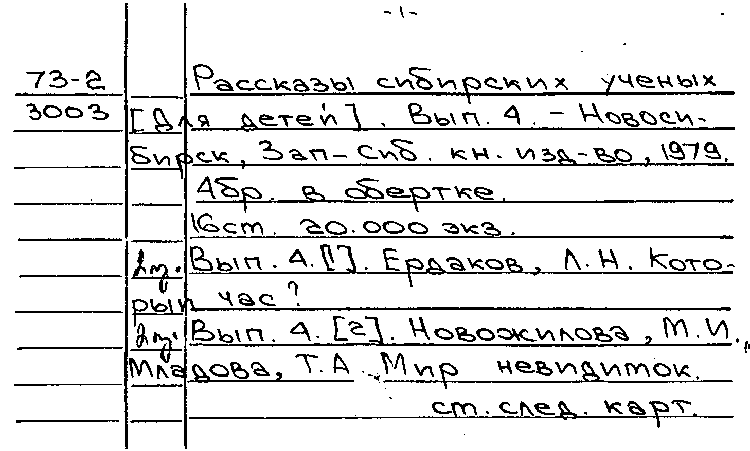 -1-
73-2 Рассказы сибирских ученых
3003 [Для детей]. Вып. 4. - Новоси-
бирск, Зап-Сиб. кн. изд-во, 1979.
4бр. в обертке.
16ст. 20.000 экз.
2л. Вып. 4. [1]. Ердаков, Л.Н. Кото-
рый час?
2л. Вып. 4. [2]. Новожилова, М.И.,
Младова, Т.А. Мир невидимок.
ст. след. карт.